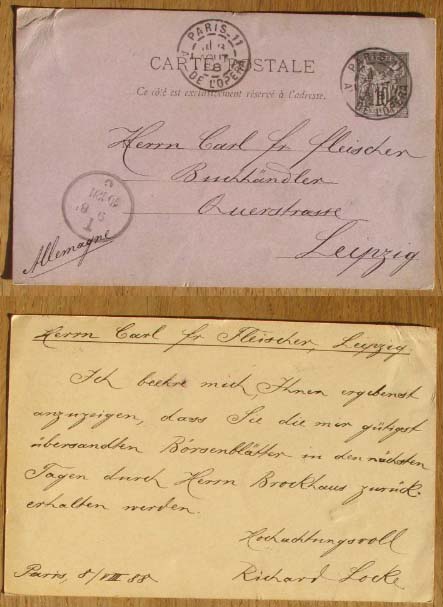 PARIS 11
AOUT
88
A. DE L'OPERA
CARTE POSTALE
Ce côté est exclusivement réservé à l'adresse.
PARIS
A. DE L'OPERA
10
Herrn Carl Fr Fleischer
Buchhändler
Querstrasse
Leipzig
Allemagne
Herrn Carl Fr Fleischer, Leipzig
Ich beehre mich, Ihnen ergebenst
anzuzeigen, dass Sie die mir gütigst
übersandten Börsenblätter in den nächsten
Tagen durch Herrn Brockhaus zurück-
erhalten werden.
Hochachtungsvoll
Paris, 8/VIII 88 Richard Locke